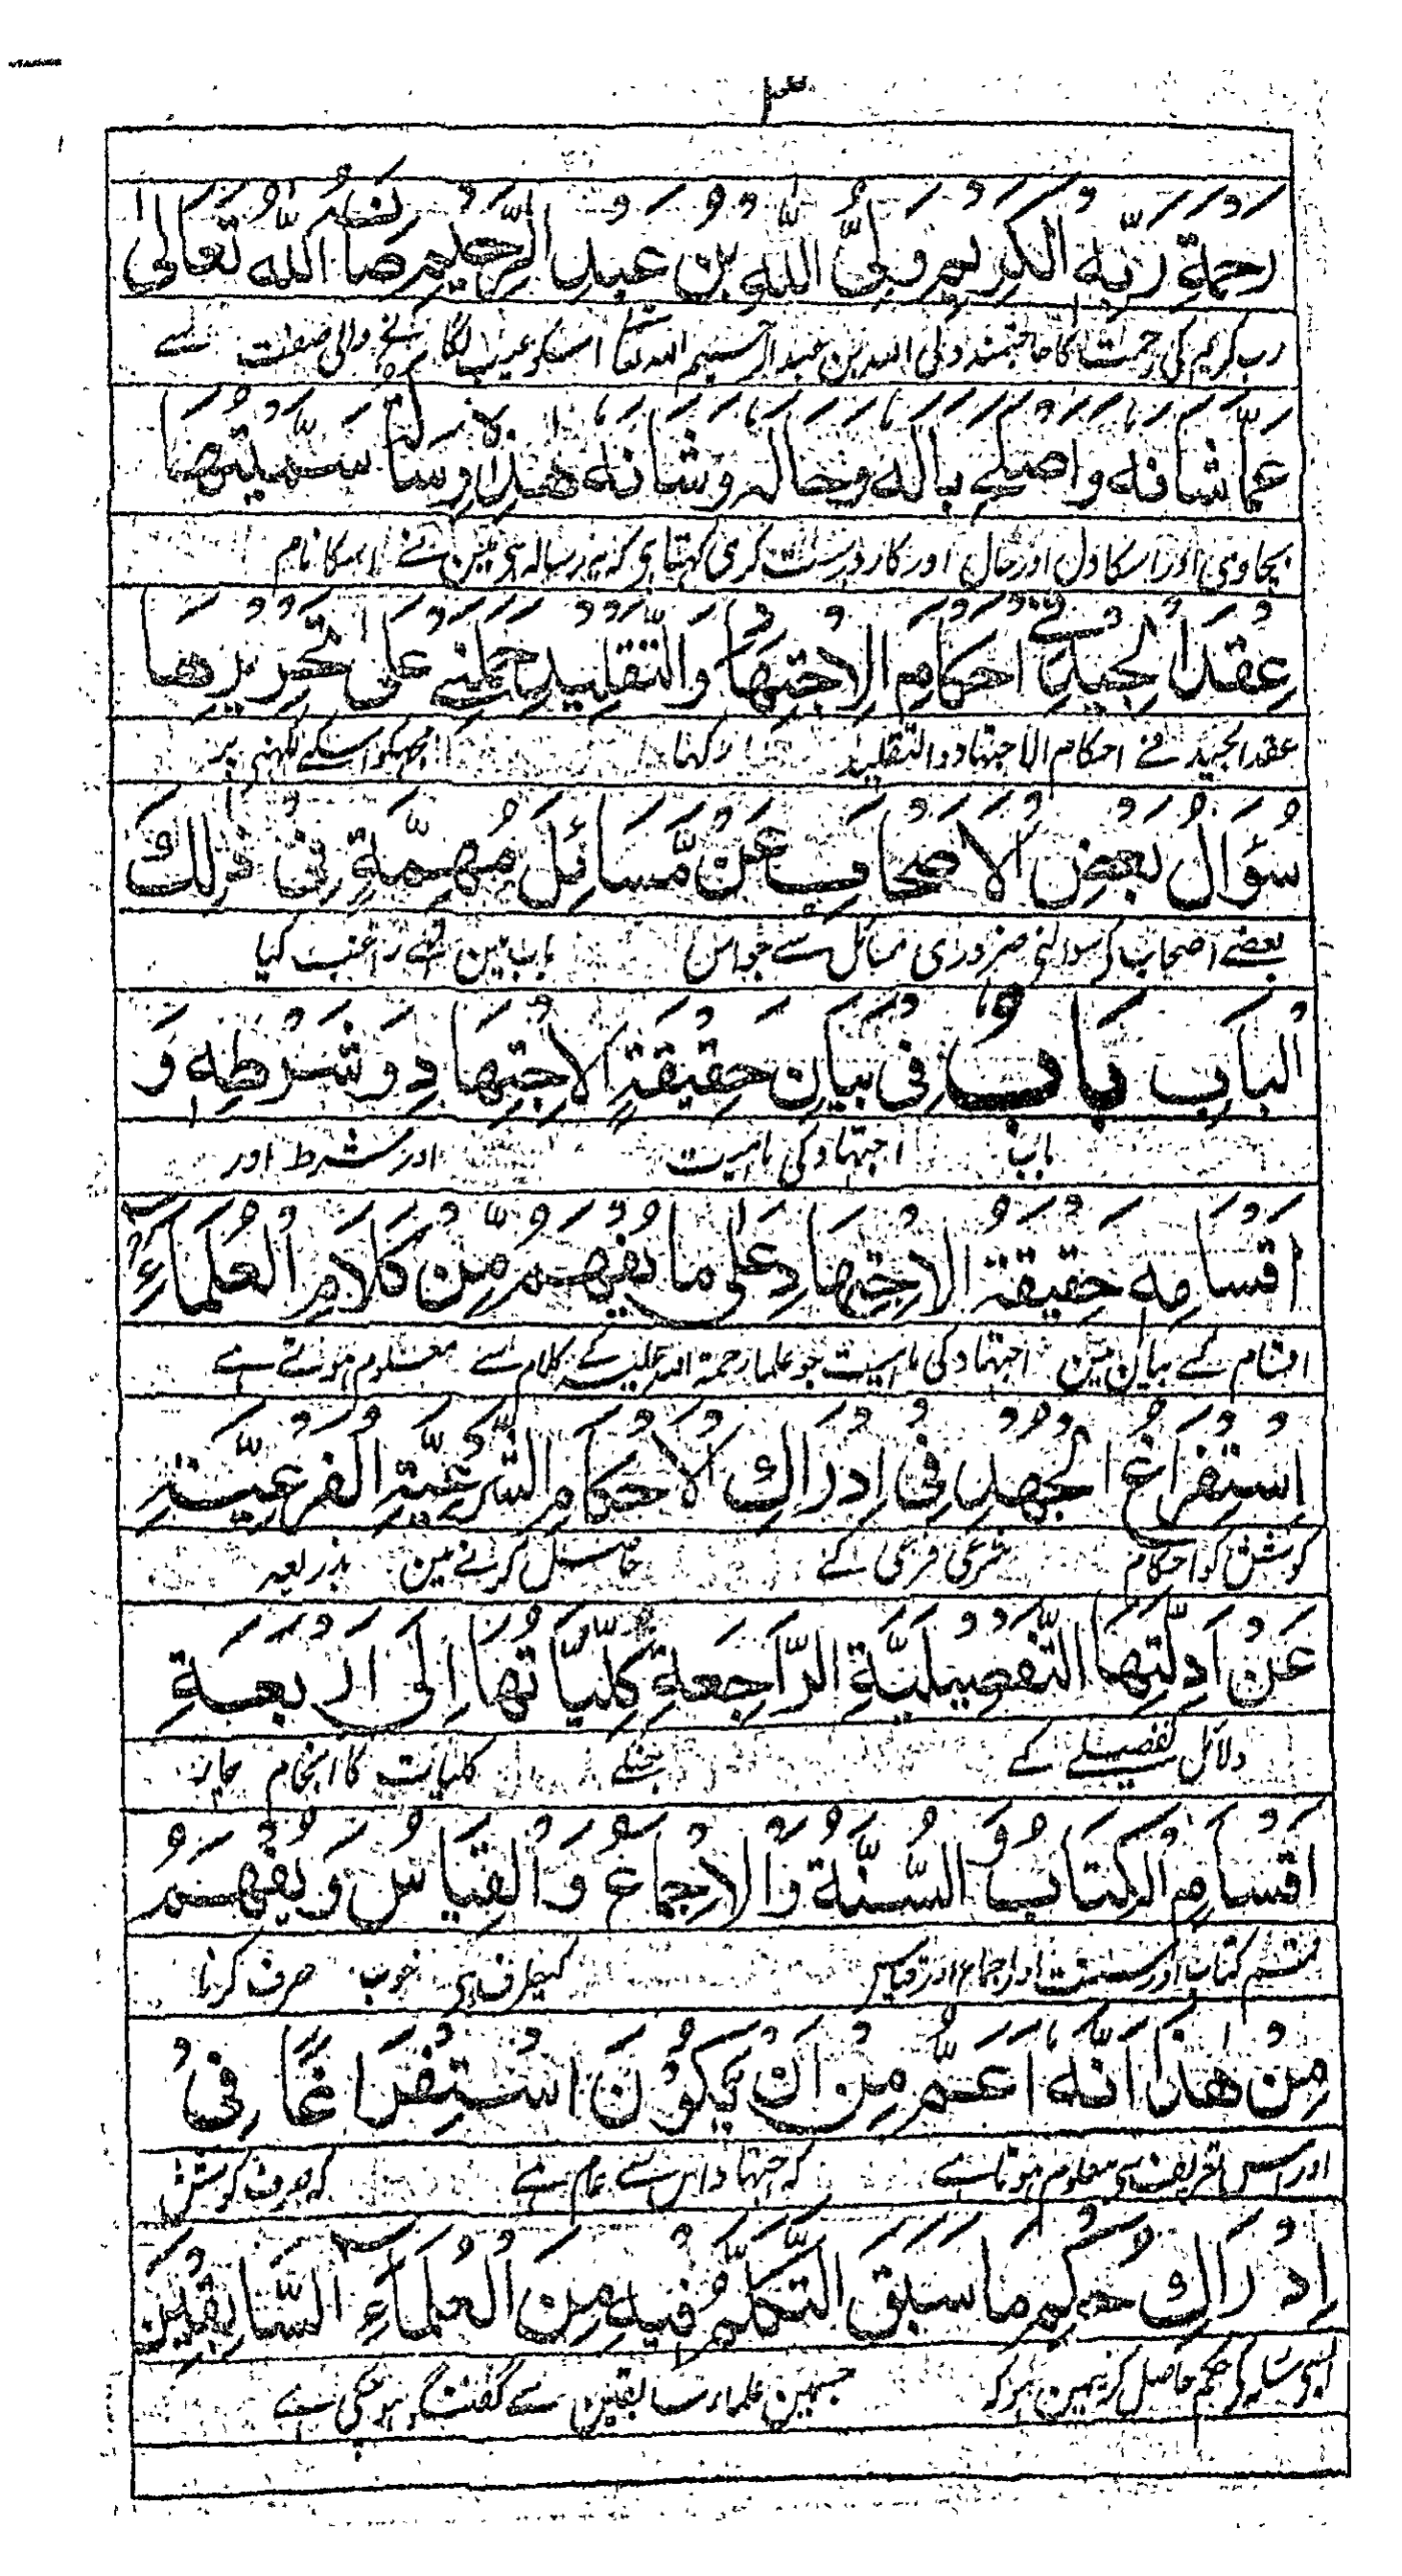 ٣
رَحْمَةِ رَبِّهِ الْكَرِيْمِ وَلِيُّ اللّٰهِ بْنُ عَبْدِ الرَّحِيْمِ صَانَهُ اللّٰهُ تَعَالٰى
رب کریم کی رحمت کا حاجتمند ولی اللہ بن عبد الرحیم اللہ تعالی اسکو عیب لگانیوالی صفت سے
عَمَّا شَانَهُ وَاَصْلَحَ بَالَهُ وَحَالَهُ وَشَانَهُ هٰذِهٖ رِسَالَةٌ سَمَّيْتُهَا
بچاوی اور اسکا دل اور حال اور کار درست کری کہتا ہی کہ یہ رسالہ ہی مین نے اسکا نام
عِقْدَ الْجِيْدِ فِيْ اَحْكَامِ الْاِجْتِهَادِ وَالتَّقْلِيْدِ حَمَلَنِيْ عَلٰى تَحْرِيْرِهَا
عقد الجید فی احکام الاجتہاد و التقلید رکہا مجہکو اسکے لکہنی پر
سُؤَالُ بَعْضِ الْاَصْحَابِ عَنْ مَّسَائِلَ مُهِمَّةٍ فِيْ ذٰلِكَ
بعضے اصحاب کے سوال نی ضروری مسائل سے جو اس باب مین تھے راغب کیا
الْبَابِ بَابٌ فِيْ بَيَانِ حَقِيْقَةِ الْاِجْتِهَادِ وَشَرْطِهٖ وَ
باب اجتہاد کی ماہیت اور شرط اور
اَقْسَامِهٖ حَقِيْقَةُ الْاِجْتِهَادِ عَلٰى مَا يُفْهَمُ مِنْ كَلَامِ الْعُلَمَاءِ
اقسام کے بیان مین اجتہاد کی ماہیت جو علما رحمۃ اللہ علیہ کے کلام سے معلوم ہوتے ہے
اِسْتِفْرَاغُ الْجُهْدِ فِيْ اِدْرَاكِ الْاَحْكَامِ الشَّرْعِيَّةِ الْفَرْعِيَّةِ
کوشش کو احکام شرعی فرعی کے حاصل کرنے مین بذریعہ
عَنْ اَدِلَّتِهَا التَّفْصِيْلِيَّةِ الرَّاجِعَةِ كُلِّيَّاتُهَا اِلٰى اَرْبَعَةِ
دلائل تفصیلے کے جنکے کلیات کا انجام چار
اَقْسَامٍ الْكِتَابُ وَ السُّنَّةُ وَالْاِجْمَاعُ وَالْقِيَاسُ وَيُفْهَمُ
قسم کتاب اور سنت اور اجماع اور قیاس کیطرف ہی خوب صرف کرنا
مِنْ هٰذَا اَنَّهُ اَعَمُّ مِنْ اَنْ يَّكُوْنَ اسْتِفْرَاغًا فِيْ
اور اس تعریف سی معلوم ہوتا ہے کہ اجتہاد اس سے عام ہے کہ صرف کوشش
اِدْرَاكِ حُكْمِ مَا سَبَقَ التَّكَلُّمُ فِيْهِ مِنَ الْعُلَمَاءِ السَّابِقِيْنَ
ایسی مسئلہ کی حکم حاصل کرنیمین ہو کہ جسمین علمار سابقین سے گفتگو ہو چکی ہے